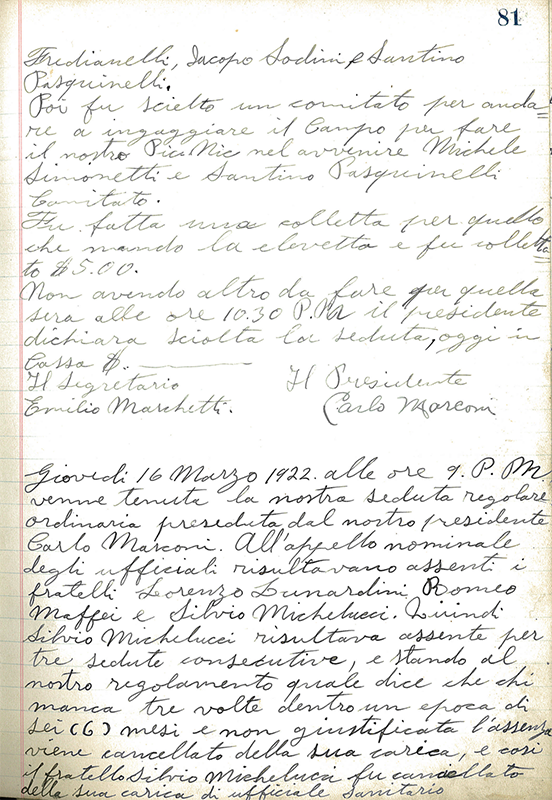 81
Fredianelli, Iacopo Sodini e Santino
Pasquinelli.
Poi fu scielto un comitato per anda=
re a ingaggiare il Campo per fare
il nostro Pic Nic nel avvenire Michele
Simonetti e Santino Pasquinelli
Comitato.
Fu fatta una colletta per quello
che mando la clevetta e fu collet=
to $5.00.
Non avendo altro da fare per quella
sera alle ore 10.30 P.M il presidente
dichiara sciolta la seduta, oggi in
Cassa $.
Il Segretario Il Presidente
Emilio Marchetti. Carlo Marconi
Giovedi 16 Marzo 1922. alle ore 9. P. M
venne tenuta la nostra seduta regolare
ordinaria preseduta dal nostro presidente
Carlo Marconi. All'appello nominale
degli ufficiali risultavano assenti i
fratelli Lorenzo Lunardini, Romeo
Maffei e Silvio Michelucci. Quindi
Silvio Michelucci risultava assente per
tre sedute consecutive, e stando al
nostro regolamento quale dice che chi
manca tre volte dentro un epoca di
sei (6) mesi e non giustificata l'assenza
viene cancellato della sua carica, e cosi
il fratello Silvio Michelucci fu cancellato
della sua carica di ufficiale Sanitario